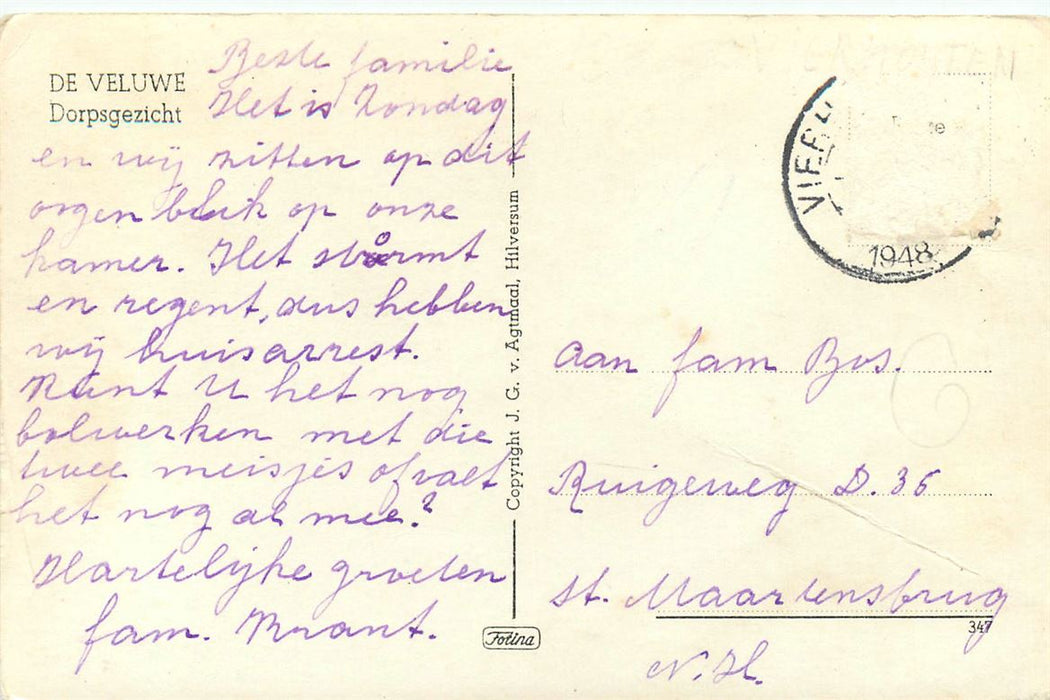 DE VELUWE
Dorpsgezicht
Beste familie
Het is Zondag
en wij zitten op dit
ogenblik op onze
kamer. Het stormt
en regent, dus hebben
wij huisarrest.
Kunt U het nog
bolwerken met die
twee meisjes of valt
het nog al mee?
Hartelijke groeten
fam. Krant.
Copyright J. G. v. Agtmaal, Hilversum
Fotina
1948
Aan fam Bos.
Ruigeweg D. 36
St. Maartensbrug
347
N. H.